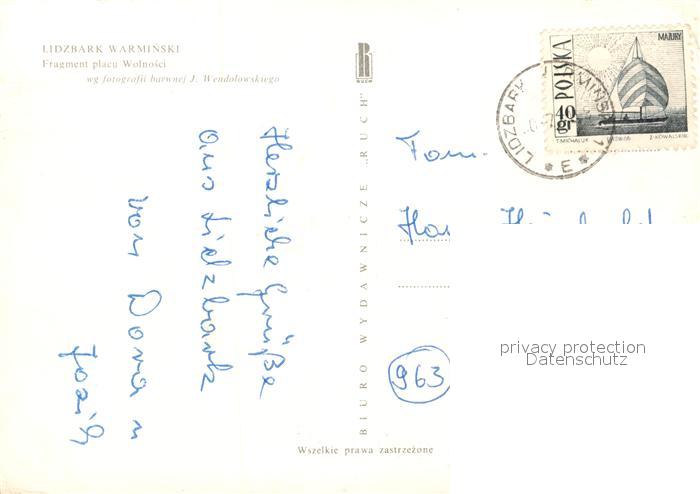 LIDZBARK WARMIŃSKI
Fragment placu Wolności
wg fotografii barwnej J. Wendołowskiego
Herzliche Grüße
aus Lidzbark
von
BIURO WYDAWNICZE „RUCH"
RUCH
Wszelkie prawa zastrzeżone
Fam.
963
MAZURY
POLSKA
40 gr
T.MICHALUK
Z.KOWALSKI
LIDZBARK
E
privacy protection
Datenschutz